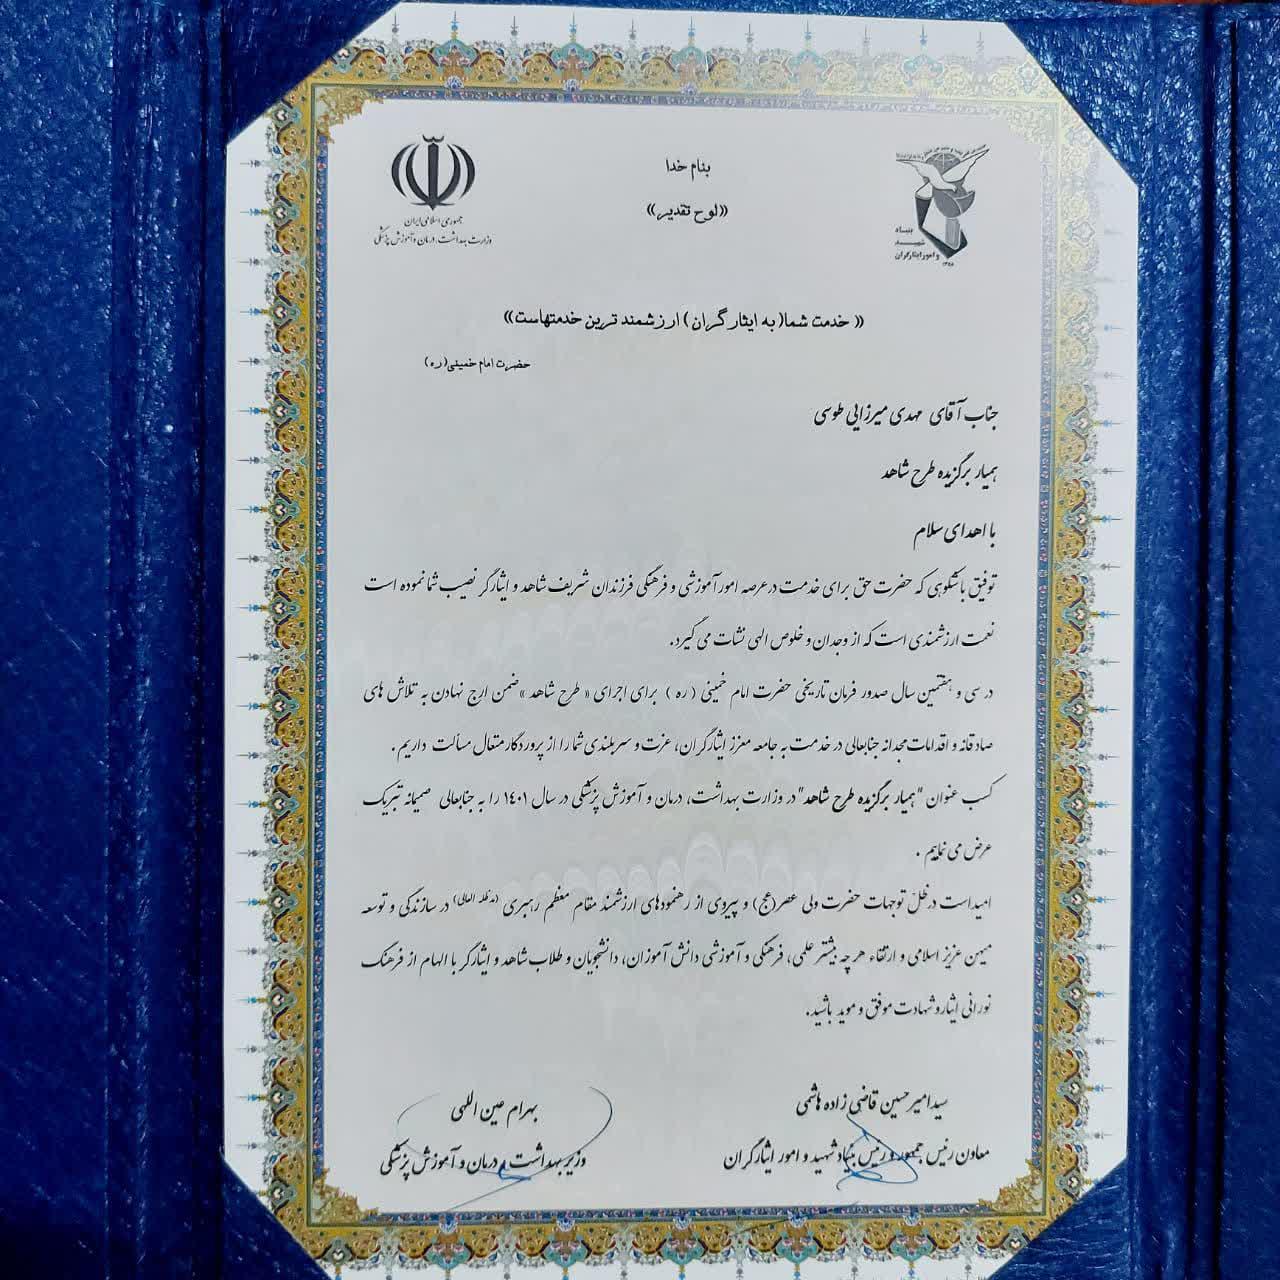 بنام خدا
«لوح تقدیر»
جمهوری اسلامی ایران
وزارت بهداشت، درمان و آموزش پزشکی
بنیاد
شهید
و امور ایثارگران
« خدمت شما( به ایثارگران) ارزشمند ترین خدمتهاست»
حضرت امام خمینی(ره)
جناب آقای مهدی میرزایی طوسی
همیار برگزیده طرح شاهد
با اهدای سلام
توفیق باشکوهی که حضرت حق برای خدمت درعرصه امور آموزشی و فرهنگی فرزندان شریف شاهد و ایثارگر نصیب شما نموده است
نعمت ارزشمندی است که از وجدان و خلوص الهی نشات می گیرد.
در سی و هفتمین سال صدور فرمان تاریخی حضرت امام خمینی ( ره ) برای اجرای « طرح شاهد » ضمن ارج نهادن به تلاش های
صادقانه و اقدامات مجدانه جنابعالی در خدمت به جامعه معزز ایثارگران، عزت و سربلندی شما را از پروردگار متعال مسألت داریم .
کسب عنوان "همیار برگزیده طرح شاهد" در وزارت بهداشت، درمان و آموزش پزشکی در سال ۱۴۰۱ را به جنابعالی صمیمانه تبریک
عرض می نماییم .
امیداست در ظلّ توجهات حضرت ولی عصر(عج) و پیروی از رهنمودهای ارزشمند مقام معظم رهبری (مدظله العالی) در سازندگی و توسعه
میهن عزیز اسلامی و ارتقاء هر چه بیشتر علمی، فرهنگی و آموزشی دانش آموزان، دانشجویان و طلاب شاهد و ایثارگر با الهام از فرهنگ
نورانی ایثار و شهادت موفق و موید باشید.
سید امیرحسین قاضی زاده هاشمی
معاون رئیس جمهور و رئیس بنیاد شهید و امور ایثارگران
بهرام عین اللهی
وزیر بهداشت، درمان و آموزش پزشکی